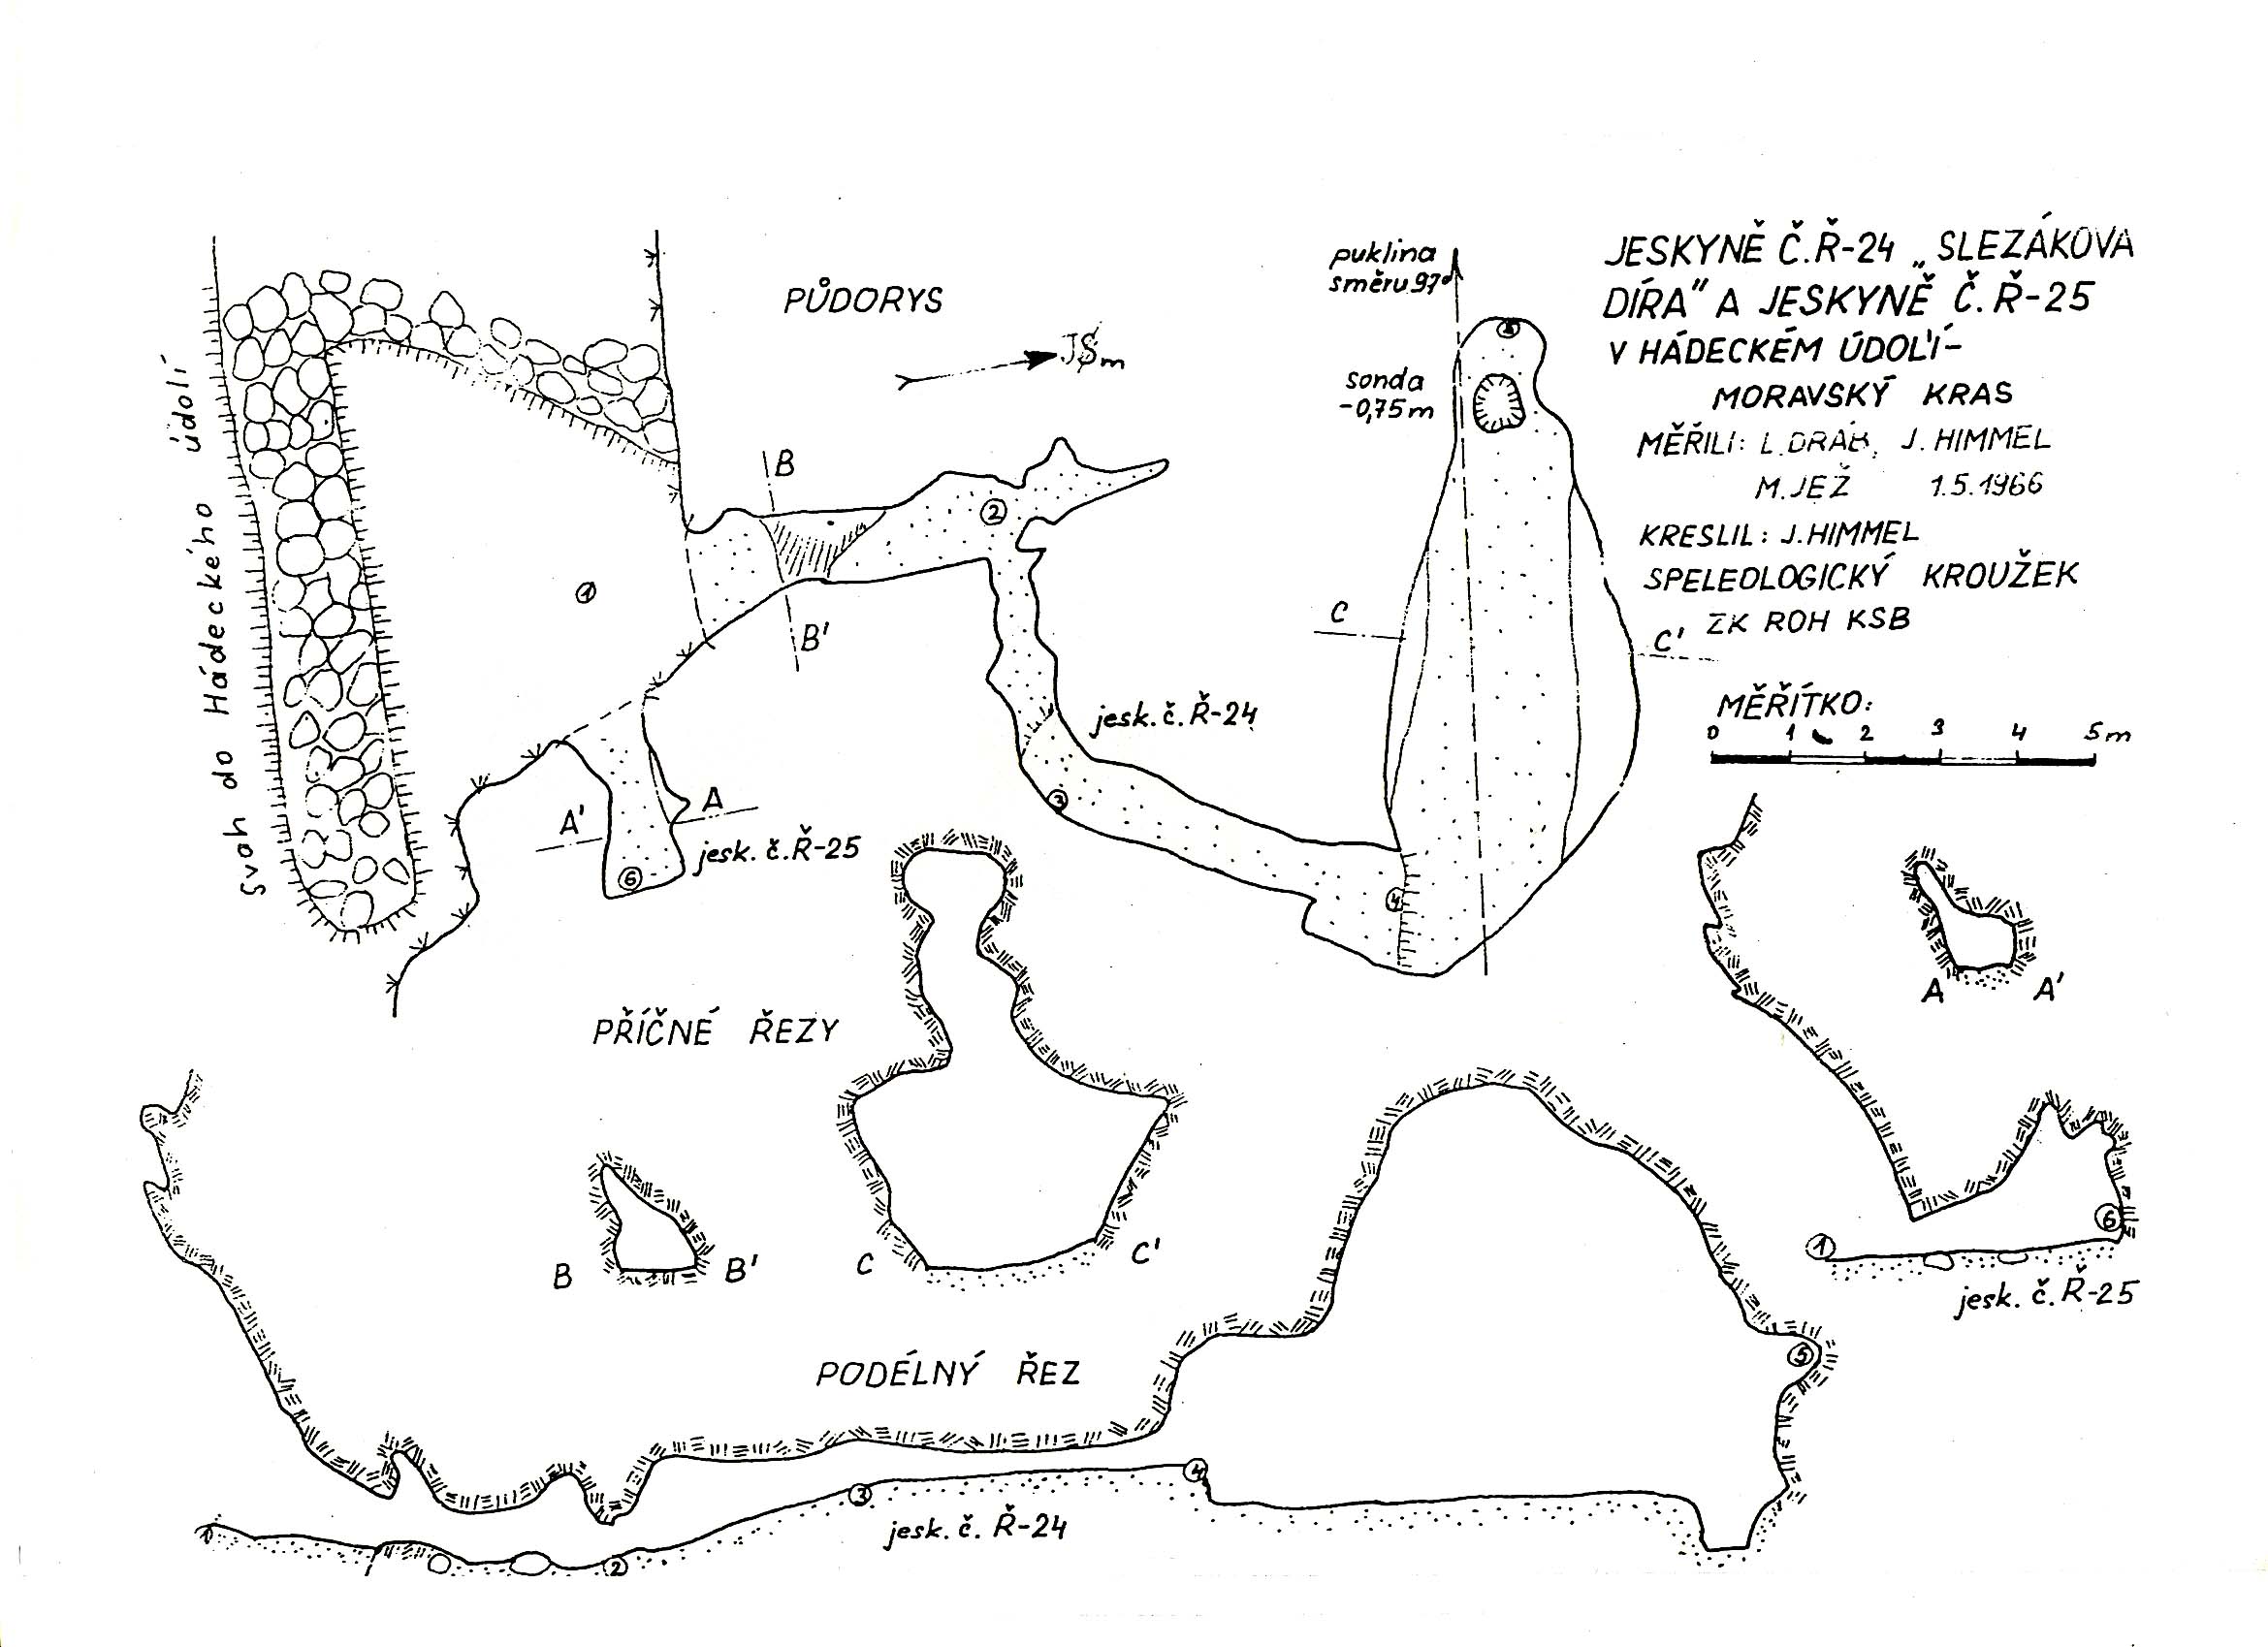 JESKYNĚ Č.Ř-24 „SLEZÁKOVA
DÍRA" A JESKYNĚ Č.Ř-25
V HÁDECKÉM ÚDOLÍ-
MORAVSKÝ KRAS
MĚŘILI: L.DRÁB, J.HIMMEL
M.JEŽ 1.5.1966
KRESLIL: J.HIMMEL
SPELEOLOGICKÝ KROUŽEK
ZK ROH KSB
MĚŘÍTKO:
0 1 2 3 4 5m
PŮDORYS
puklina
směru 97°
sonda
-0,75m
Svah do Hádeckého údolí
B
B'
1
2
3
4
C
C'
jesk. č. Ř-24
A'
A
jesk. č. Ř-25
6
PŘÍČNÉ ŘEZY
A A'
B B'
C C'
PODÉLNÝ ŘEZ
1
6
jesk. č. Ř-25
5
4
3
2
jesk. č. Ř-24